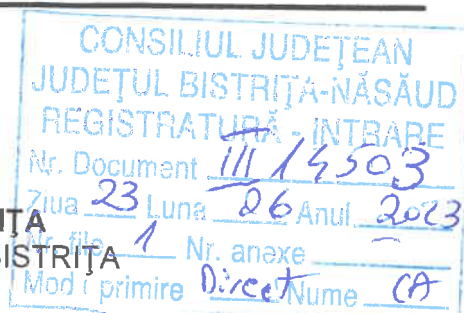 CONSILIUL JUDEȚEAN
JUDEȚUL BISTRIȚA-NĂSĂUD
REGISTRATURĂ - INTRARE
Nr. Document III / 14503
Ziua 23 Luna 06 Anul 2023
IȚA
Nr. file 1 Nr. anexe —
BISTRIȚA
Mod primire Direct Nume CA